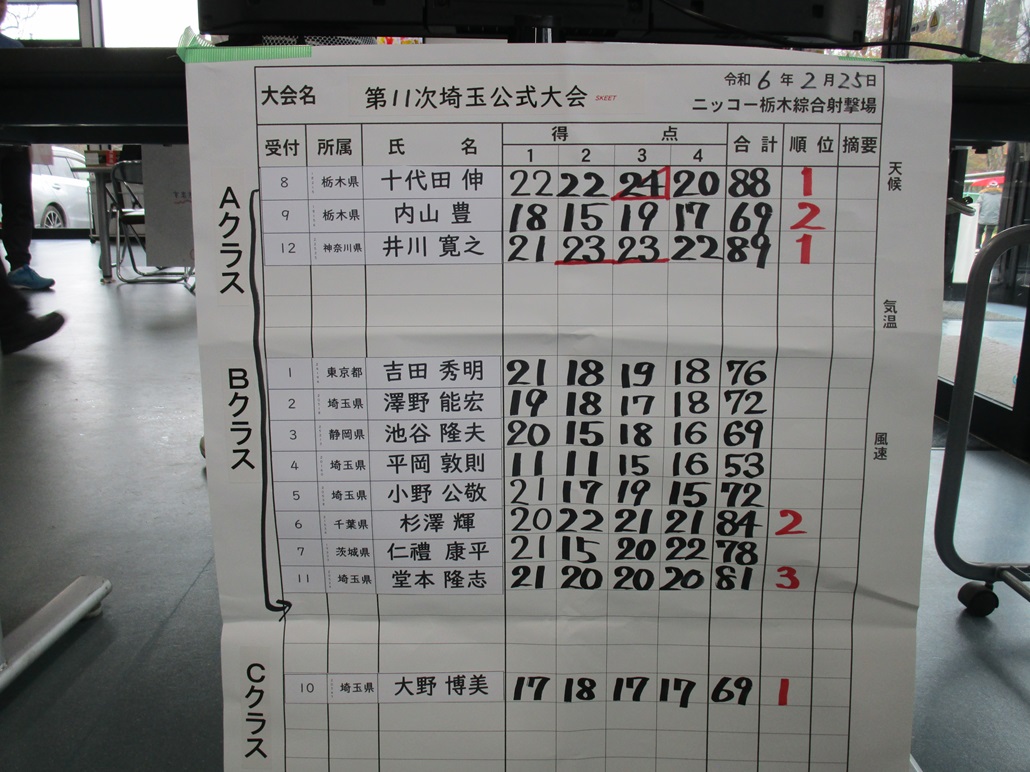 令和 6 年 2 月 25 日
大会名 第11次埼玉公式大会 SKEET
ニッコー栃木綜合射撃場
受付 所属 氏 名 得 点 合 計 順 位 摘要
1 2 3 4
Aクラス
8 栃木県 十代田 伸 22 22 24 20 88 1
9 栃木県 内山 豊 18 15 19 17 69 2
12 神奈川県 井川 寛之 21 23 23 22 89 1
Bクラス
1 東京都 吉田 秀明 21 18 19 18 76
2 埼玉県 澤野 能宏 19 18 17 18 72
3 静岡県 池谷 隆夫 20 15 18 16 69
4 埼玉県 平岡 敦則 11 11 15 16 53
5 埼玉県 小野 公敬 21 17 19 15 72
6 千葉県 杉澤 輝 20 22 21 21 84 2
7 茨城県 仁禮 康平 21 15 20 22 78
11 埼玉県 堂本 隆志 21 20 20 20 81 3
Cクラス
10 埼玉県 大野 博美 17 18 17 17 69 1
天候
気温
風速